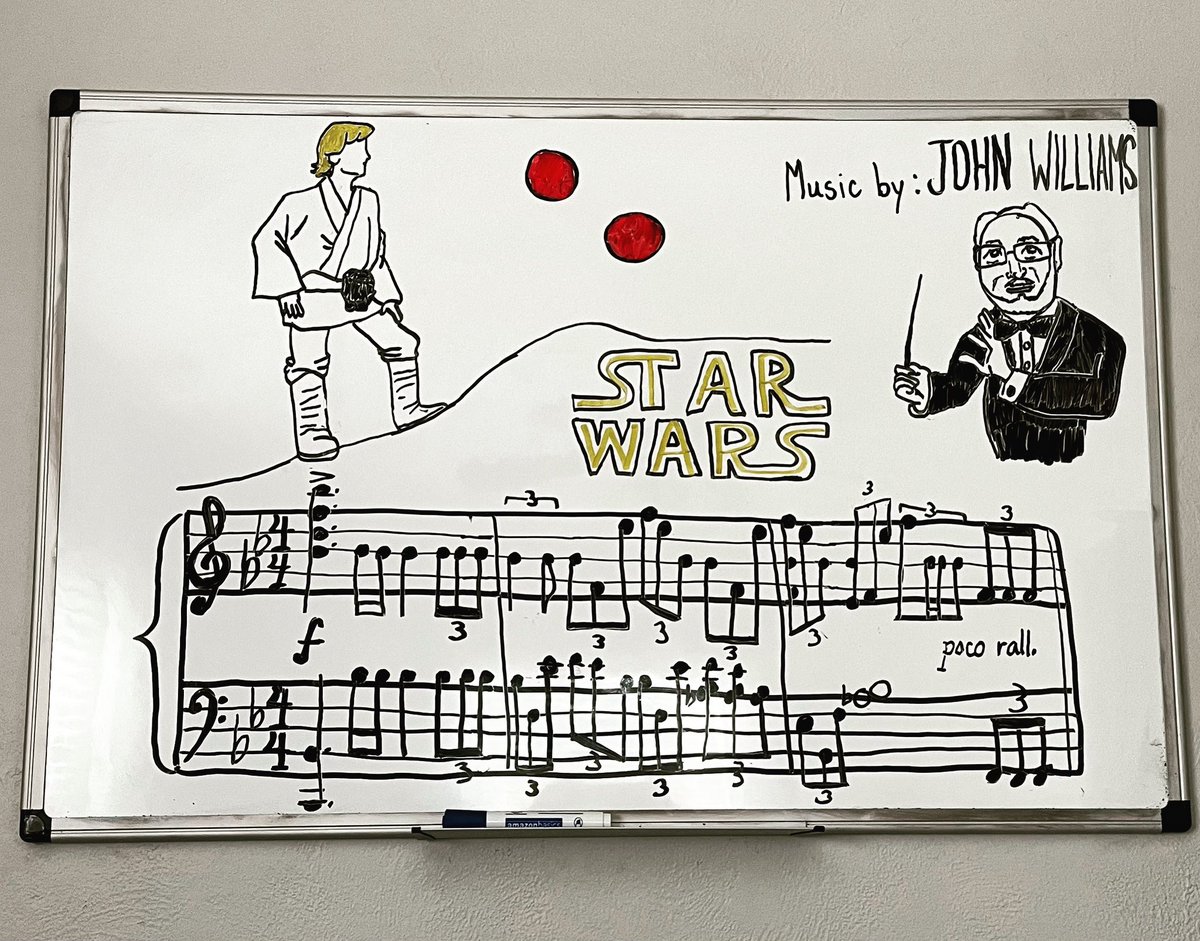 Music by: JOHN WILLIAMS
STAR
WARS
3
3
3
3
4
4
f
3
3
3
3
3
poco rall.
4
4
3
3
3
3
3
3
3
amazonbasics